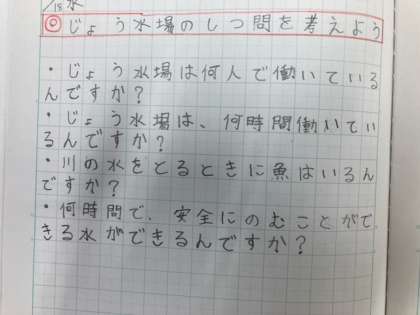 /18 水
◎じょう水場のしつ問を考えよう
・じょう水場は何人で働いている
んですか?
・じょう水場は、何時間働いてい
るんですか?
・川の水をとるときに魚はいるん
ですか?
・何時間で、安全にのむことがで
きる水ができるんですか?